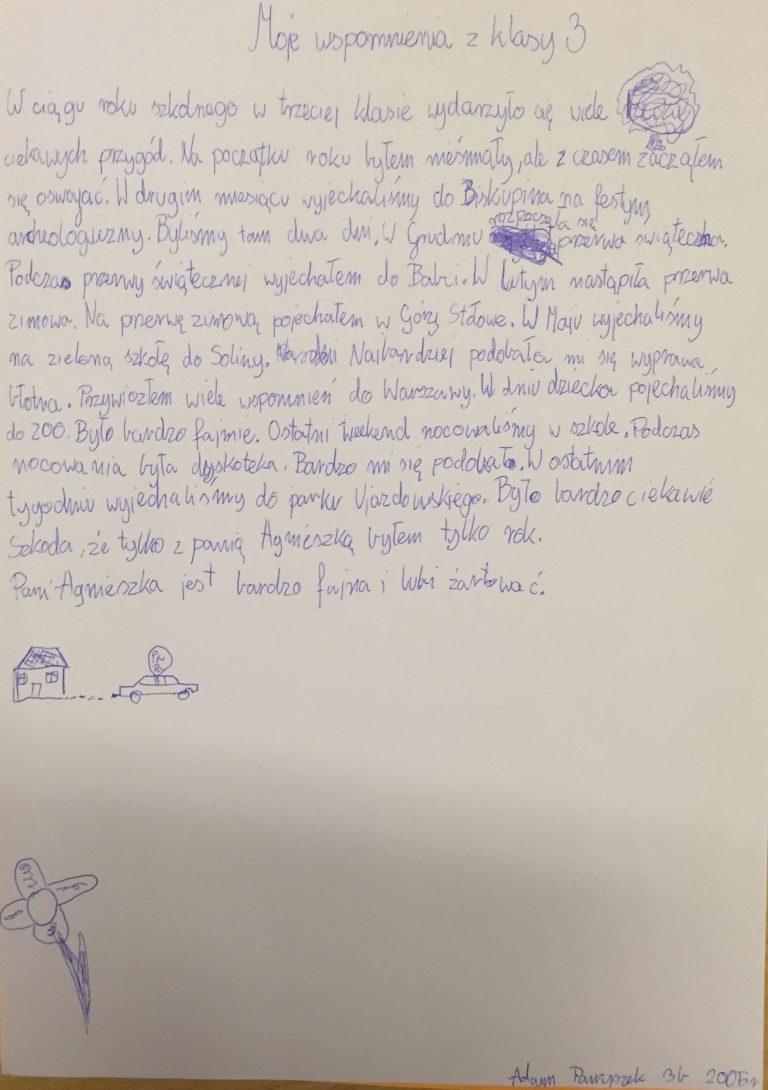 Moje wspomnienia z klasy 3
W ciągu roku szkolnego w trzeciej klasie wydarzyło się wiele
ciekawych przygód. Na początku roku byłem nieśmiały, ale z czasem zacząłem
się oswajać. W drugim miesiącu wyjeckaliśmy do Biskupina na festyn
archeologiczny. Byliśmy tam dwa dni. W Grudniu rozpoczęła się przerwa świąteczna.
Podczas przerwy świątecznej wyjechałem do Babci. W lutym nastąpiła przerwa
zimowa. Na przerwę zimową pojechałem w Góry Stołowe. W Maju wyjechaliśmy
na zieloną szkołę do Soliny. Najbardziej podobała mi się wyprawa
błotna. Przywiozłem wiele wspomnień do Warszawy. W dniu dziecka pojechaliśmy
do ZOO. Było bardzo fajnie. Ostatni weekend nocowaliśmy w szkole. Podczas
nocowania była dyskoteka. Bardzo mi się podobało. W ostatnim
tygodniu wyjechaliśmy do parku Ujazdowskiego. Było bardzo ciekawie
Szkoda, że tylko z panią Agnieszką byłem tylko rok.
Pani Agnieszka jest bardzo fajna i lubi żartować.
Adam 3b 2005r